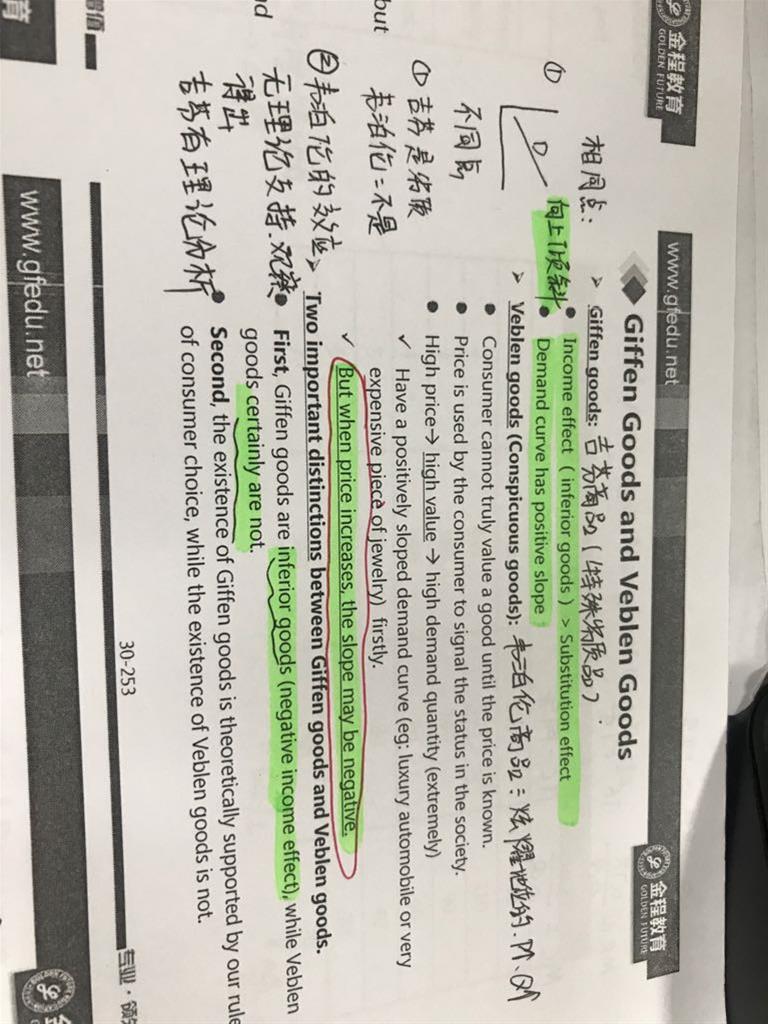 金程教育
GOLDEN FUTURE
www.gfedu.net
金程教育
GOLDEN FUTURE
Giffen Goods and Veblen Goods
相同点:
➢ Giffen goods: 吉芬商品(特殊劣质品)
• Income effect ( inferior goods ) > Substitution effect
① D 向上倾斜
• Demand curve has positive slope
➢ Veblen goods (Conspicuous goods): 韦泊伦商品:炫耀性的. P↑、Q↑
• Consumer cannot truly value a good until the price is known.
不同点
• Price is used by the consumer to signal the status in the society.
• High price→ high value → high demand quantity (extremely)
① 吉芬是劣质
✓ Have a positively sloped demand curve (eg: luxury automobile or very
韦泊伦:不是
expensive piece of jewelry) firstly.
but
✓ But when price increases, the slope may be negative.
② 韦泊伦的效应
➢ Two important distinctions between Giffen goods and Veblen goods.
无理论支持.观察
• First, Giffen goods are inferior goods (negative income effect), while Veblen
得出
goods certainly are not.
吉芬有理论分析
• Second, the existence of Giffen goods is theoretically supported by our rule
of consumer choice, while the existence of Veblen goods is not.
nd
30-253
专业·领
增值
www.gfedu.net
育
金